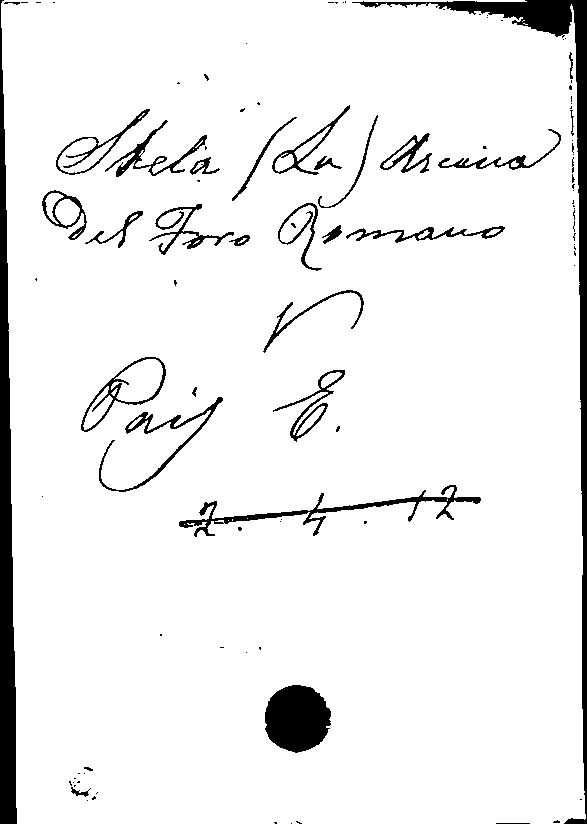 Stela (La) Arcaica
del Foro Romano
V
Pais E.
2. 4. 12